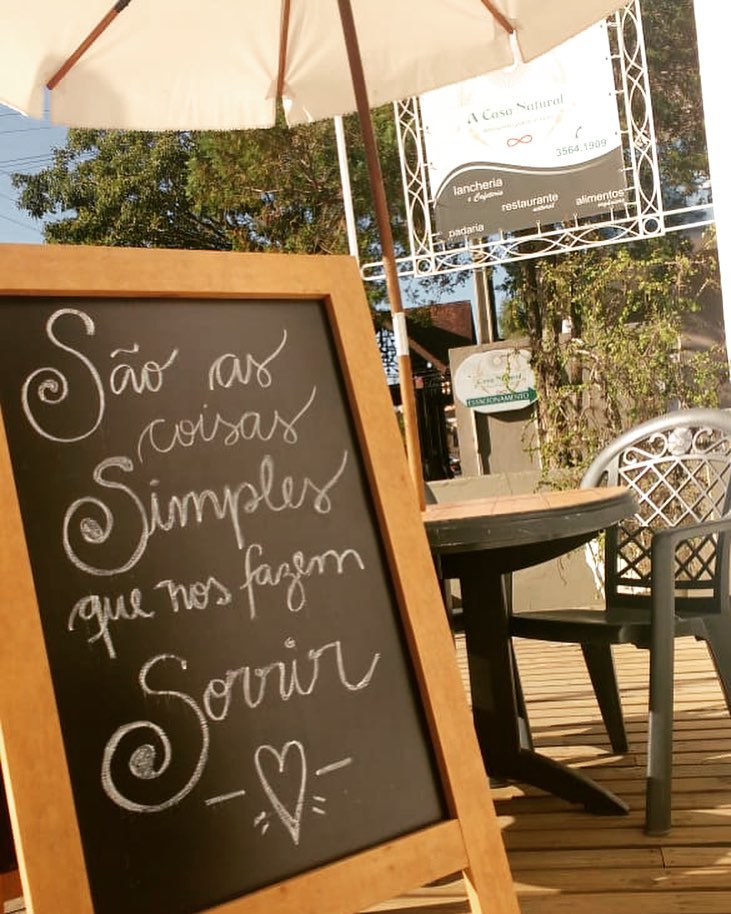 A Casa Natural
3564.1909
lancheria
e Cafeteria
restaurante
alimentos
padaria
Casa Natural
ESTACIONAMENTO
São as
coisas
Simples
que nos fazem
Sorrir